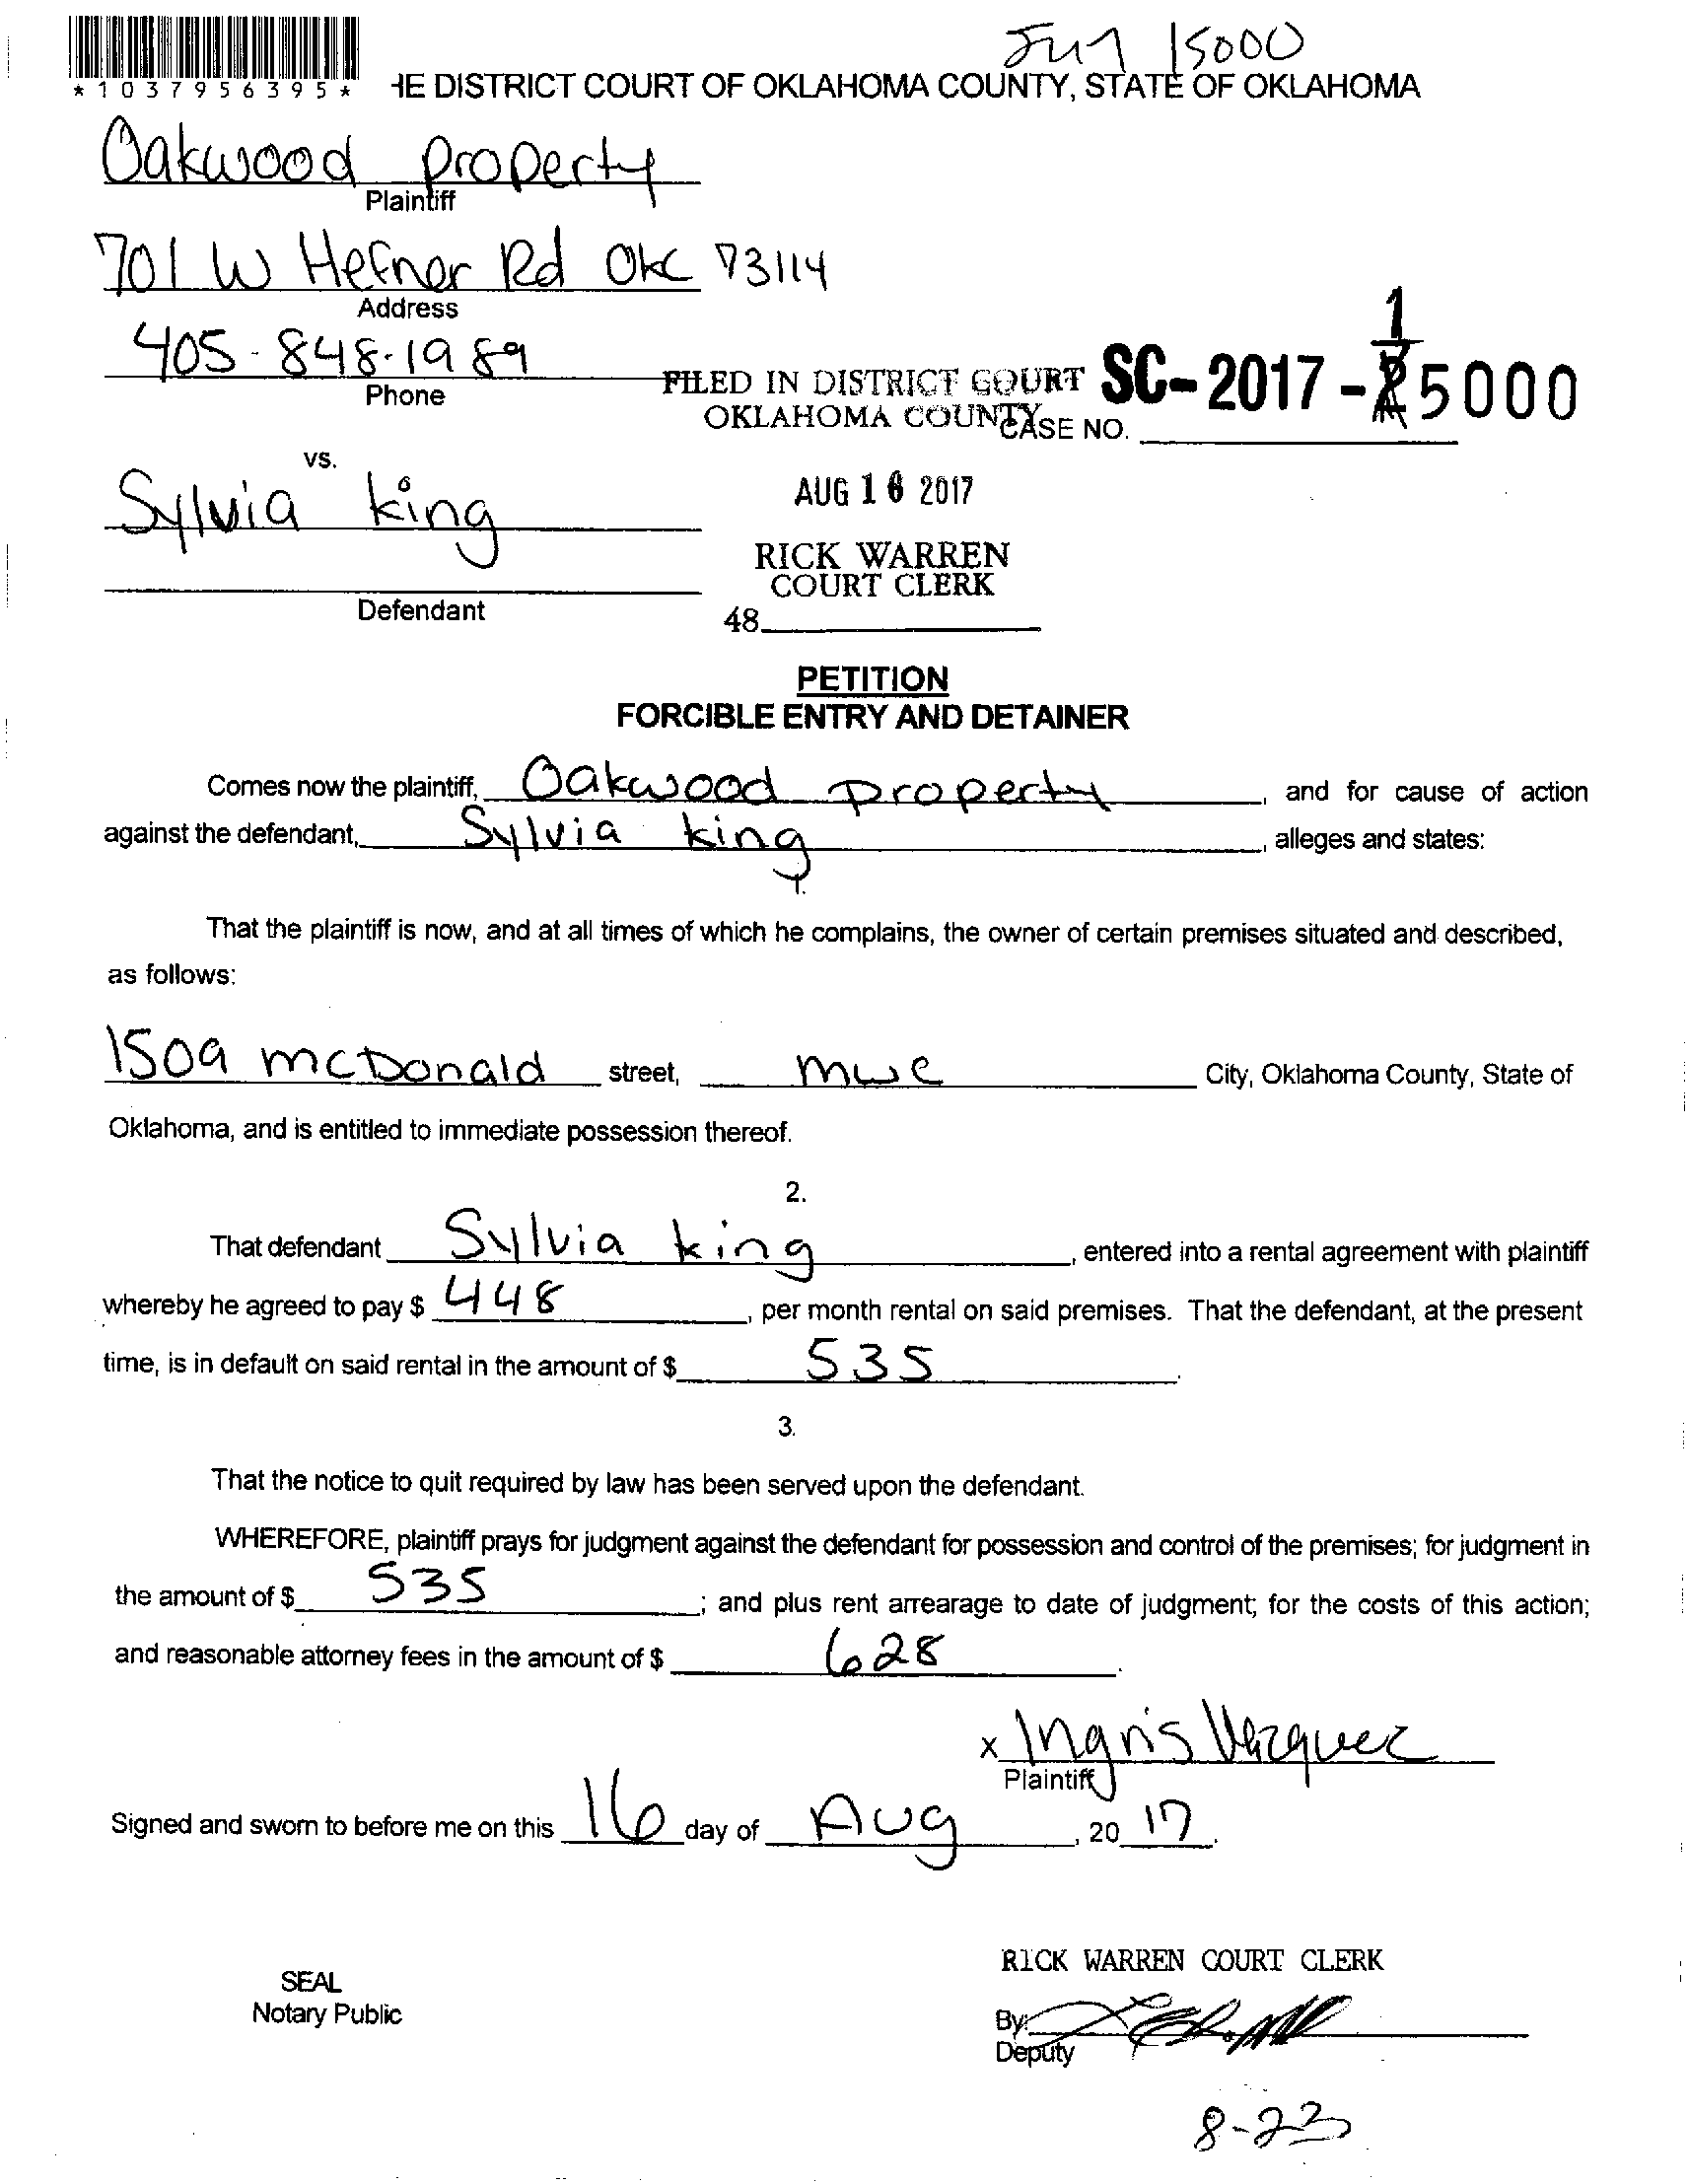 Jun 15000
*1037956395*
HE DISTRICT COURT OF OKLAHOMA COUNTY, STATE OF OKLAHOMA
Oakwood property
Plaintiff
701 W Hefner Rd OKC 73114
Address
405-848-1989
Phone
FILED IN DISTRICT COURT
OKLAHOMA COUNTY
CASE NO.
SC-2017-15000
vs.
Sylvia king
AUG 16 2017
RICK WARREN
COURT CLERK
Defendant
48
PETITION
FORCIBLE ENTRY AND DETAINER
Comes now the plaintiff, Oakwood property, and for cause of action
against the defendant, Sylvia king, alleges and states:
1.
That the plaintiff is now, and at all times of which he complains, the owner of certain premises situated and described,
as follows:
1509 mcDonald street, mwc City, Oklahoma County, State of
Oklahoma, and is entitled to immediate possession thereof.
2.
That defendant Sylvia king, entered into a rental agreement with plaintiff
whereby he agreed to pay $ 448, per month rental on said premises. That the defendant, at the present
time, is in default on said rental in the amount of $ 535.
3.
That the notice to quit required by law has been served upon the defendant.
WHEREFORE, plaintiff prays for judgment against the defendant for possession and control of the premises; for judgment in
the amount of $ 535; and plus rent arrearage to date of judgment; for the costs of this action;
and reasonable attorney fees in the amount of $ 628.
x Ingris Vazquez
Plaintiff
Signed and sworn to before me on this 16 day of Aug, 20 17.
RICK WARREN COURT CLERK
SEAL
Notary Public
By:
Deputy
8-23